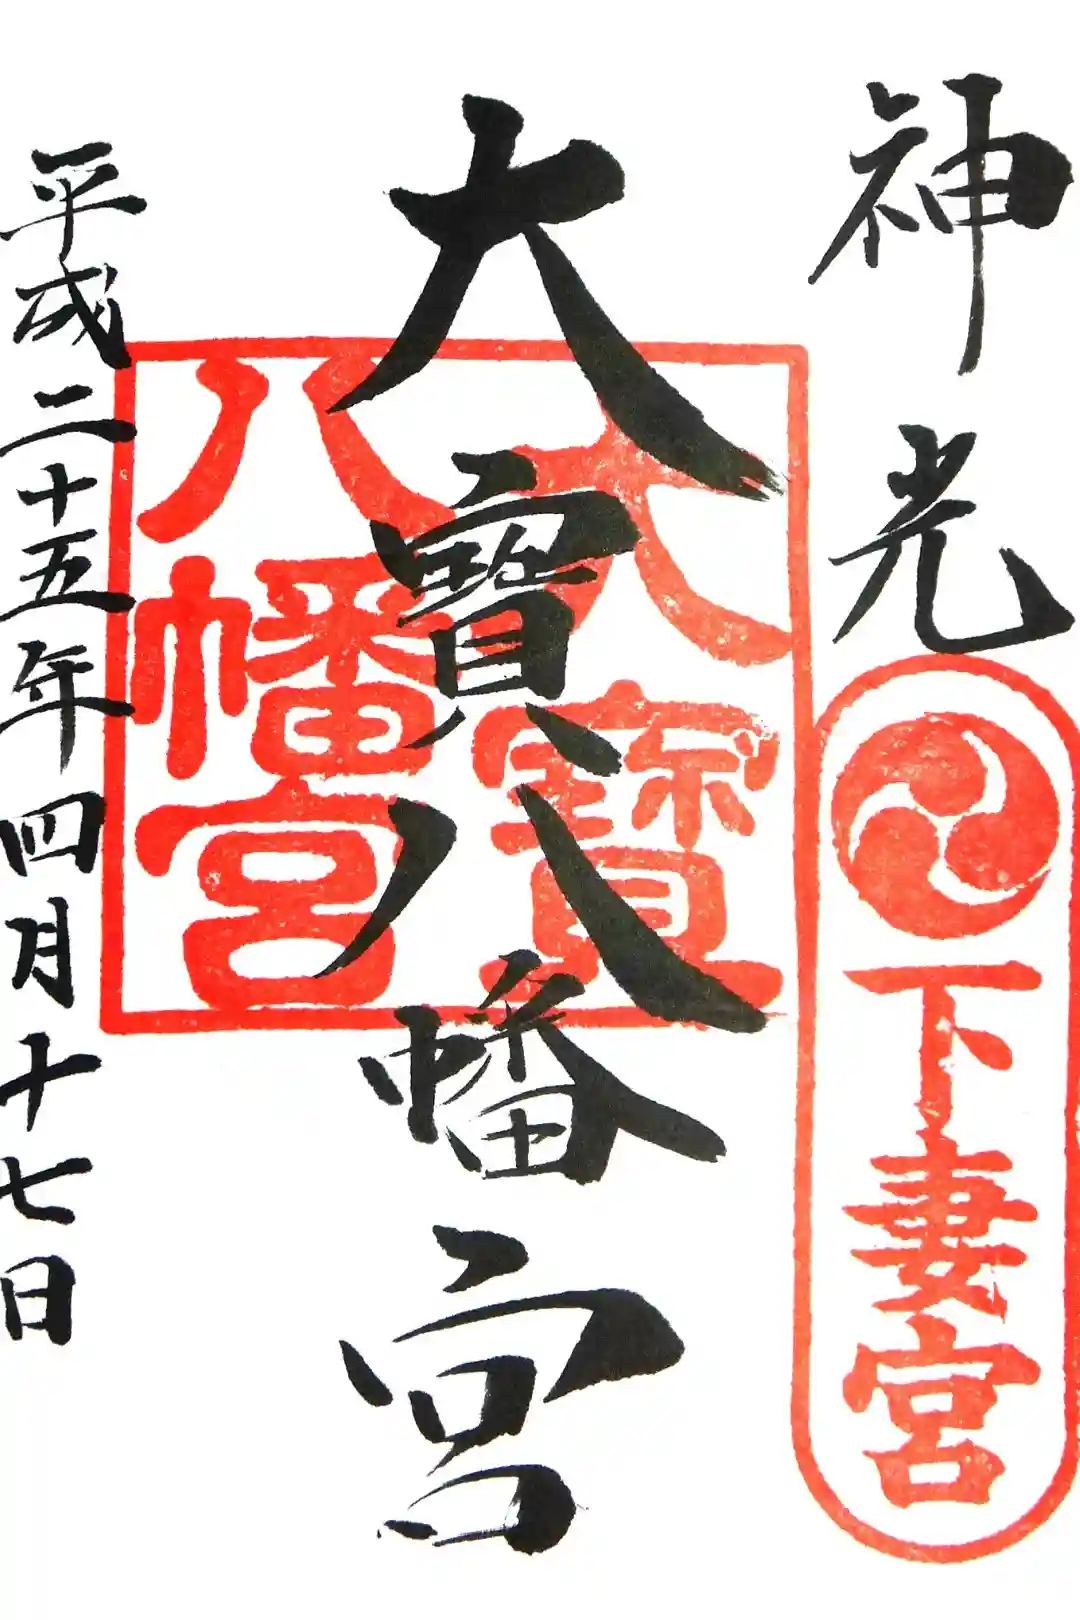 神光
下妻宮
大寳八幡宮
大寳
八幡宮
平成二十五年四月十七日